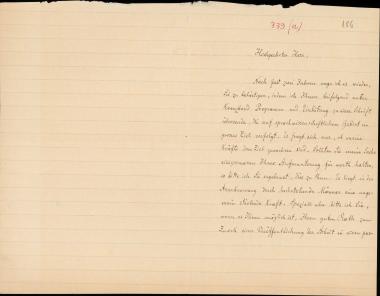 739 (a)
186
Hochgeehrter Herr,
Nach fast zwei Jahren wage ich es wieder,
Sie zu behelligen, indem ich Ihnen beifolgend unter
Kreuzband Programm und Einleitung zu einer Schrift
übersende, die auf sprachwissenschaftlichem Gebiet ein
grosses Ziel verfolgt. Es fragt sich nur, ob meine
Kräfte dem Ziel gewachsen sind. Sollten Sie meine Sache
einigermassen Ihrer Aufmunterung für werth halten,
so bitte ich Sie ergebenst, dies zu thun. Es liegt in der
Anerkennung durch hochstehende Männer eine unge-
mein stärkende Kraft. Speziell aber bitte ich Sie,
wenn es Ihnen möglich ist, Ihren guten Rath zum
Zweck einer Veröffentlichung der Arbeit in einem